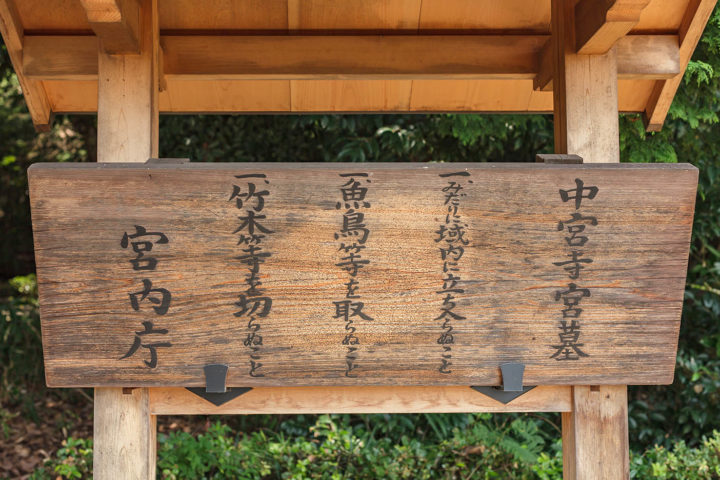 中宮寺宮墓
一、みだりに域内に立入らぬこと
一、魚鳥等を取らぬこと
一、竹木等を切らぬこと
宮内庁